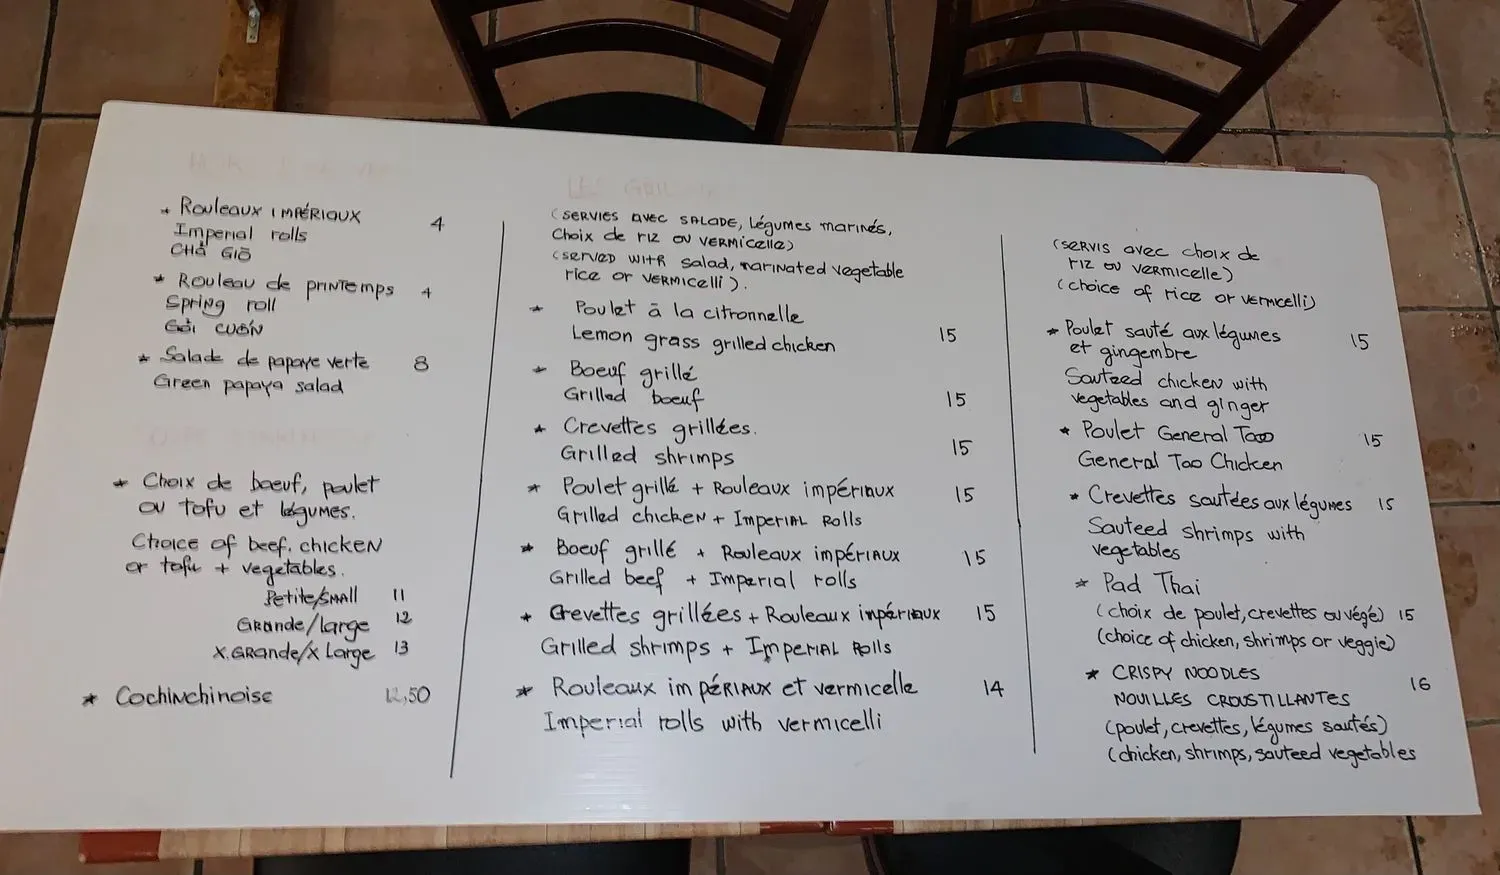 * Rouleaux IMPÉRIAUX 4
Imperial rolls
CHẢ GIÒ
* Rouleau de printemps 4
Spring roll
Gỏi CUỐN
* Salade de papaye verte 8
Green papaya salad
* Choix de boeuf, poulet
ou tofu et légumes.
Choice of beef, chicken
or tofu + vegetables.
Petite/SMALL 11
Grande/large 12
X.GRANDE/X Large 13
* Cochinchinoise 12,50
LES
(SERVIES AVEC SALADE, légumes marinés,
Choix de riz ou vermicelle)
(SERVED WITH Salad, marinated vegetable
rice or VERMICELLI).
* Poulet à la citronnelle
Lemon grass grilled chicken 15
* Boeuf grillé
Grilled boeuf 15
* Crevettes grillées.
Grilled shrimps 15
* Poulet grillé + Rouleaux impériaux 15
Grilled chicken + Imperial Rolls
* Boeuf grillé + Rouleaux impériaux 15
Grilled beef + Imperial rolls
* Crevettes grillées + Rouleaux impériaux 15
Grilled shrimps + Imperial Rolls
* Rouleaux impériaux et vermicelle 14
Imperial rolls with vermicelli
(SERVIS avec choix de
riz ou vermicelle)
(choice of rice or vermicelli)
* Poulet sauté aux légumes 15
et gingembre
Sauteed chicken with
vegetables and ginger
* Poulet General Tao 15
General Tao Chicken
* Crevettes sautées aux légumes 15
Sauteed shrimps with
vegetables
* Pad Thai
(choix de poulet, crevettes ou végé) 15
(choice of chicken, shrimps or veggie)
* CRISPY NOODLES 16
NOUILLES CROUSTILLANTES
(poulet, crevettes, légumes sautés)
(chicken, shrimps, sauteed vegetables